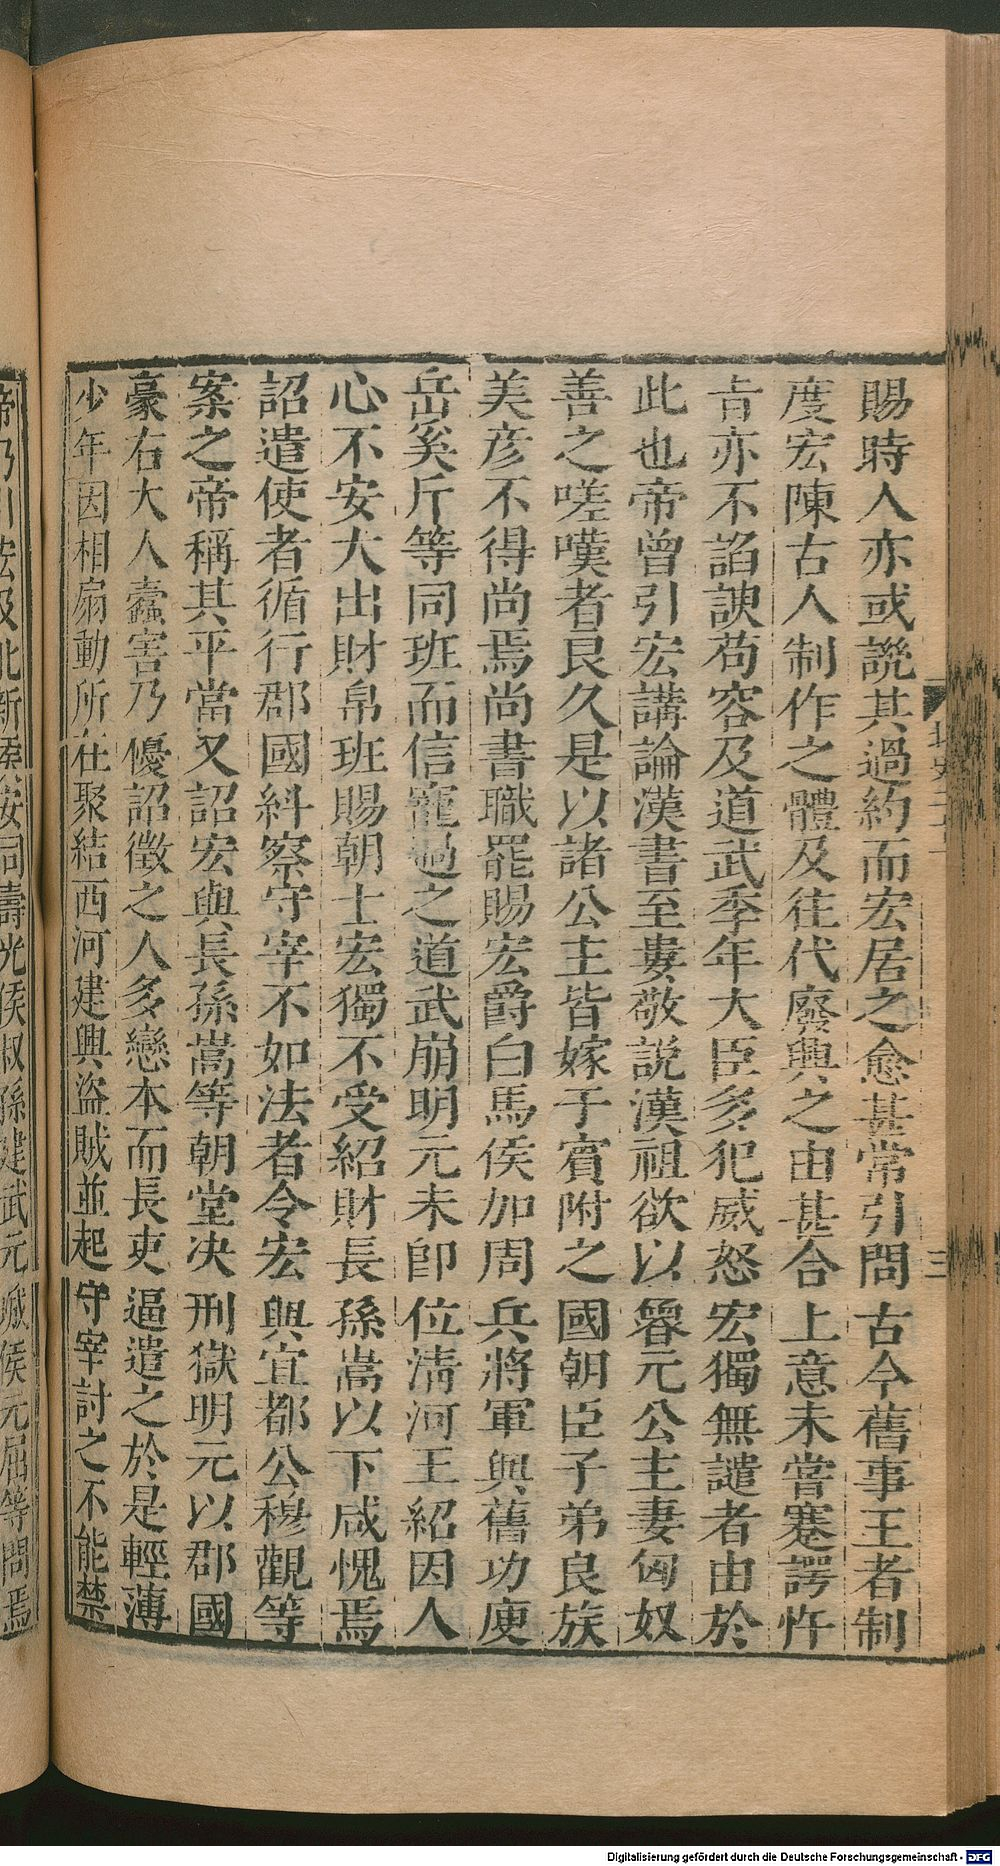 賜時人亦或譏其過約而宏居之愈甚常引問古今舊事王者制
度宏陳古人制作之體及往代廢興之由甚合上意未嘗蹇諤忤
旨亦不諂諛苟容及道武季年大臣多犯威怒宏獨無譴者由於
此也帝曾引宏講論漢書至婁敬説漢祖欲以魯元公主妻匈奴
善之嗟嘆者良久是以諸公主皆嫁于賓附之國朝臣子弟良族
美彦不得尚焉尚書職罷賜宏爵白馬侯加周兵將軍與舊功庾
岳奚斤等同班而信寵過之道武崩明元未即位清河王紹因人
心不安大出財帛班賜朝士宏獨不受紹財長孫嵩以下咸愧焉
詔遣使者循行郡國糾察守宰不如法者令宏與宜都公穆觀等
案之帝稱其平當又詔宏與長孫嵩等朝堂决刑獄明元以郡國
豪右大人蠹害乃優詔徴之人多戀本而長吏逼遣之於是輕薄
少年因相扇動所在聚結西河建興盜賊並起守宰討之不能禁
帝乃引宏及北新侯安同壽光侯叔孫建武元城侯元屈等問焉
三
Digitalisierung gefördert durch die Deutsche Forschungsgemeinschaft - DFG